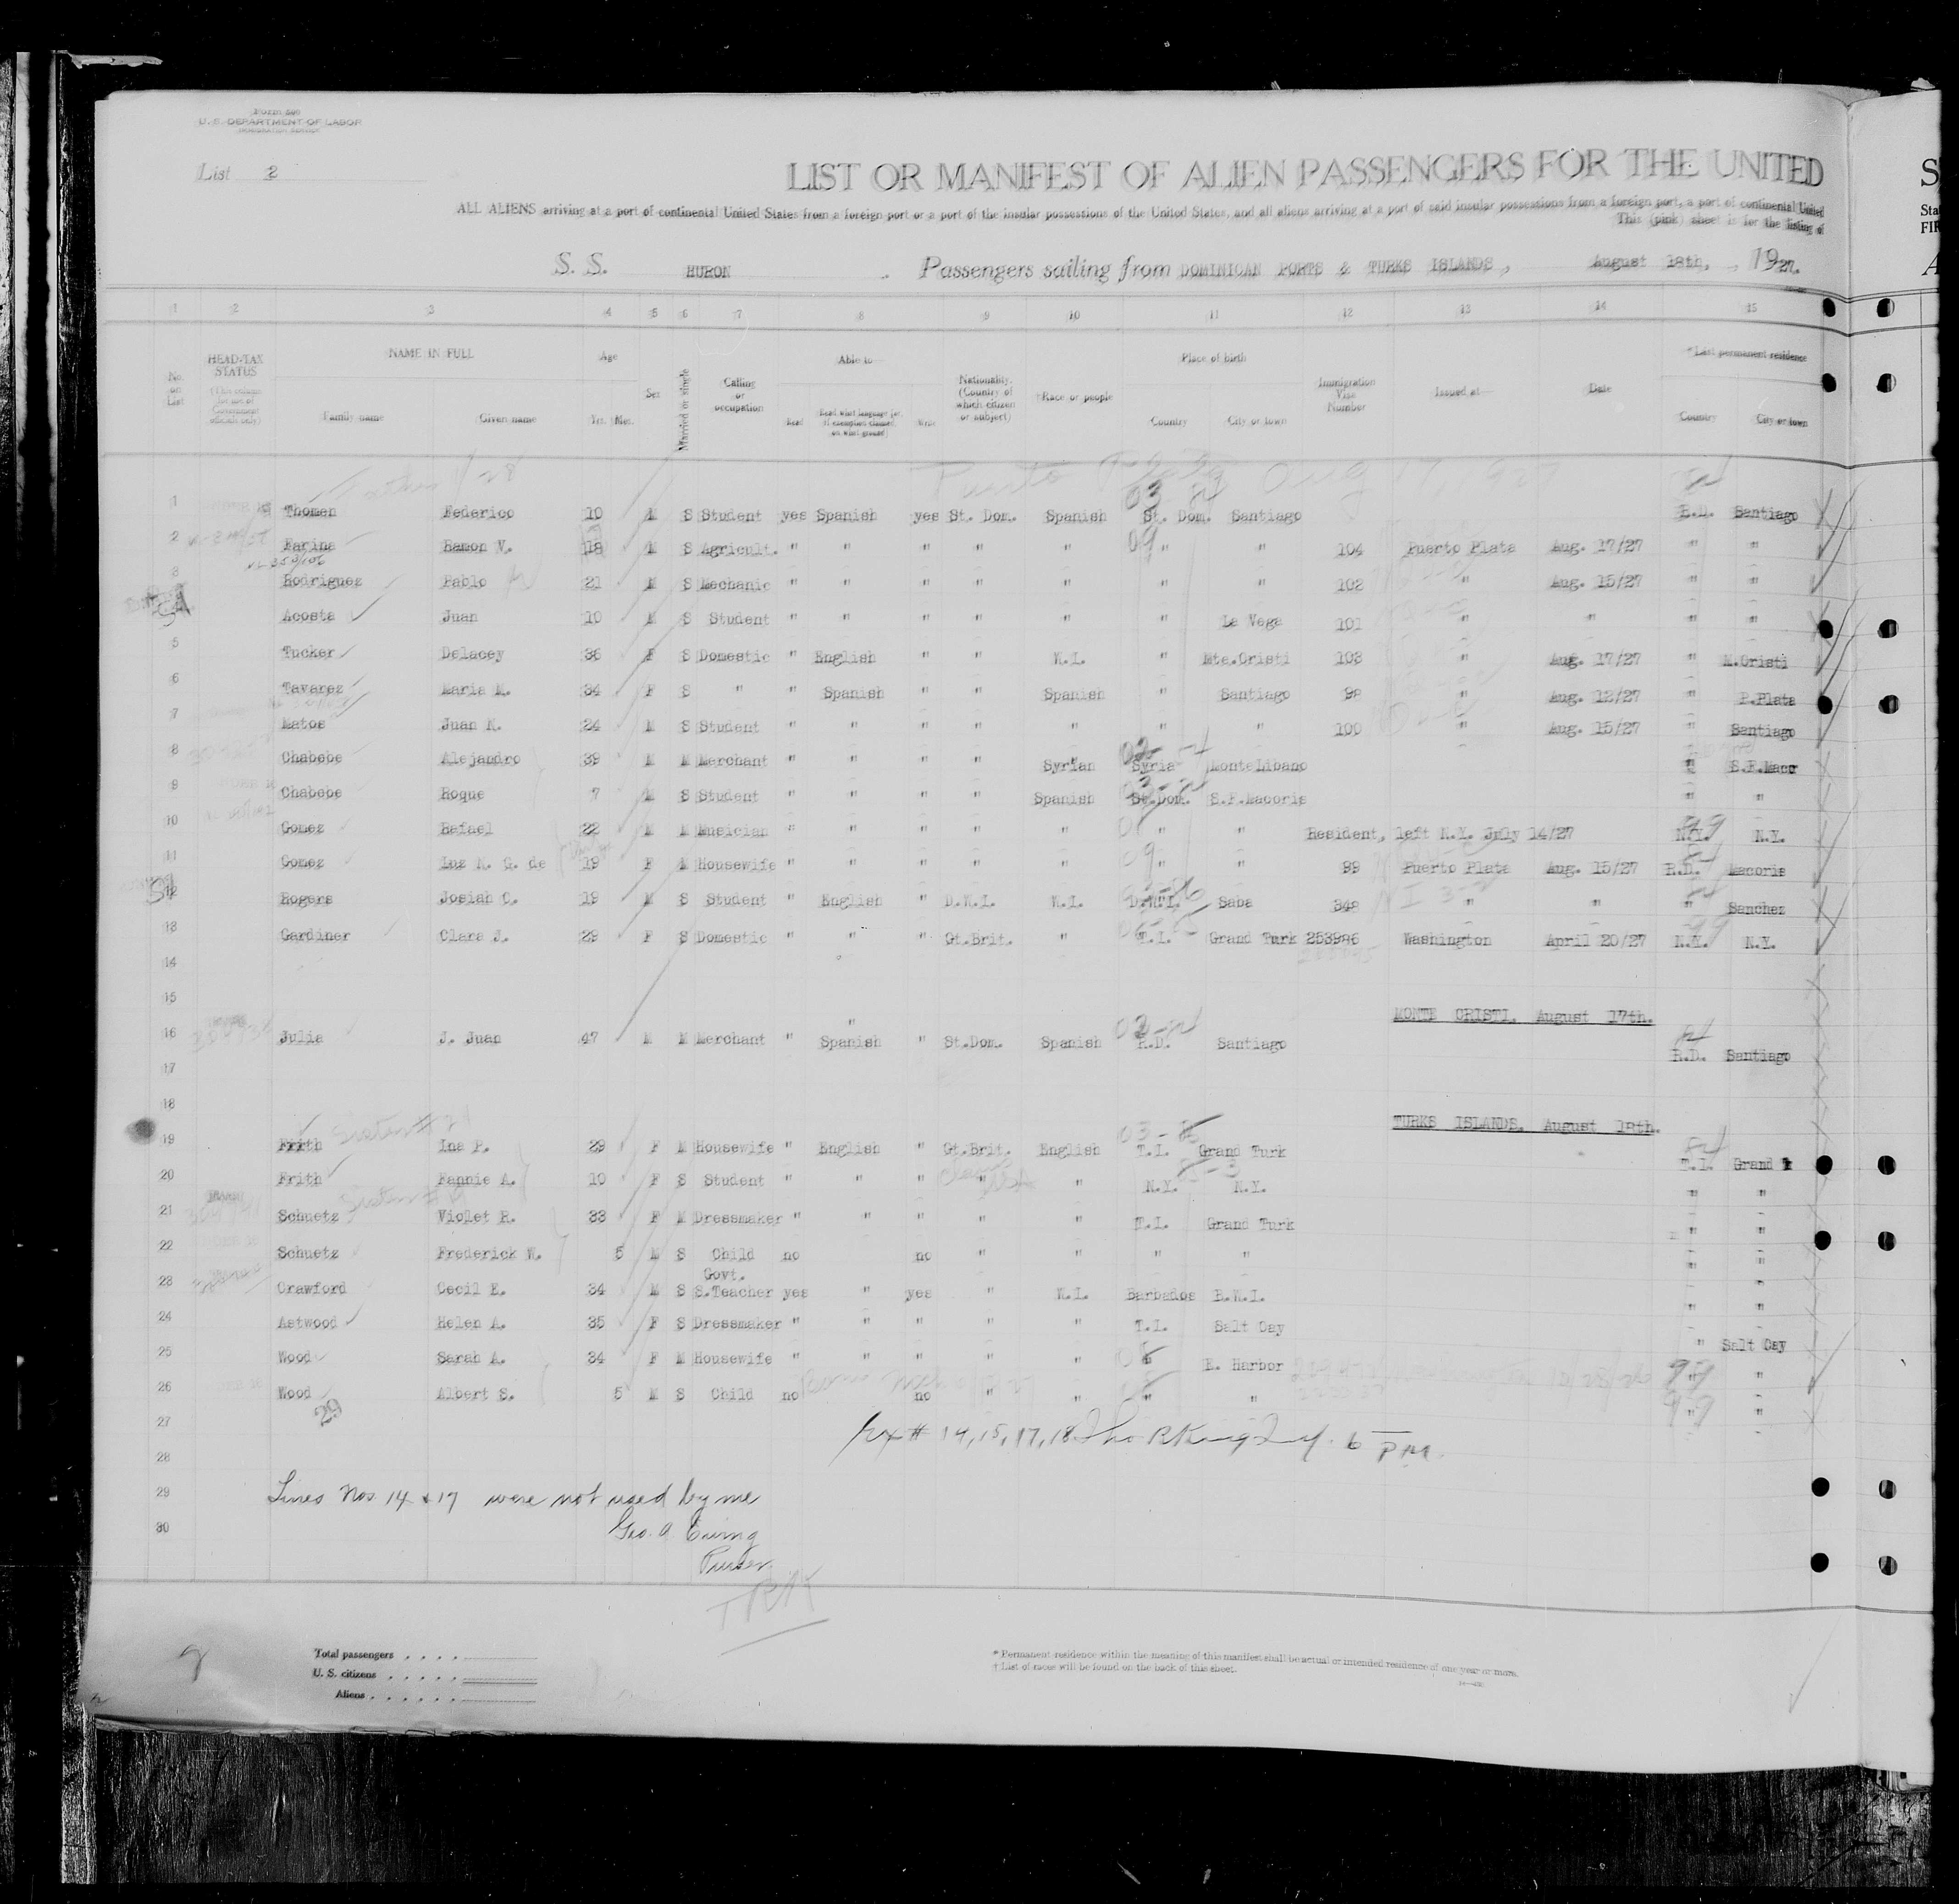 Form 500
U. S. DEPARTMENT OF LABOR
IMMIGRATION SERVICE
List 2
LIST OR MANIFEST OF ALIEN PASSENGERS FOR THE UNITED
ALL ALIENS arriving at a port of continental United States from a foreign port or a port of the insular possessions of the United States, and all aliens arriving at a port of said insular possessions from a foreign port, a port of continental United
This (pink) sheet is for the listing of
S. S. HURON Passengers sailing from DOMINICAN PORTS & TURKS ISLANDS, August 18th, , 1927.
1 2 3 4 5 6 7 8 9 10 11 12 13 14 15
No. on List HEAD-TAX STATUS (This column for use of Government officials only) NAME IN FULL Family name Given name Age Yrs. Mos. Sex Married or single Calling or occupation Able to Read Read what language [or, if exemption claimed, on what ground] Write Nationality. (Country of which citizen or subject) †Race or people Place of birth Country City or town Immigration Visa Number Issued at Date *Last permanent residence Country City or town
Puerto Plata Aug 17/1927
1 Thomen Federico 10 M S Student yes Spanish yes St. Dom. Spanish St. Dom. Santiago R.D. Santiago
2 Farina Ramon V. 18 M S Agricult. " " " " " " " 104 Puerto Plata Aug. 17/27 " "
3 Rodriguez Pablo 21 M S Mechanic " " " " " " " 102 " Aug. 15/27 " "
Acosta Juan 10 M S Student " " " " " " La Vega 101 " " " "
5 Tucker Delacey 36 F S Domestic " English " " W.I. " Mte.Cristi 103 " Aug. 17/27 " M.Cristi
6 Tavarez Maria M. 34 F S " " Spanish " " Spanish " Santiago 98 " Aug. 12/27 " P.Plata
7 Matos Juan N. 24 M S Student " " " " " " " 100 " Aug. 15/27 Santiago
8 Chabebe Alejandro 39 M M Merchant " " " " Syrian Syria MonteLibano " S.F.Macor
9 Chabebe Roque 7 M S Student " " " " Spanish St.Dom. S.F.Macoris " "
10 Gomez Rafael 22 M M Musician " " " " " " " Resident, left N.Y. July 14/27 N.Y. N.Y.
11 Gomez Luz N. G. de 19 F M Housewife " " " " " " " 99 Puerto Plata Aug. 15/27 R.D. Macoris
12 Rogers Josiah C. 19 M S Student " English " D.W.I. W.I. D.W.I. Saba 348 " " " Sanchez
13 Gardiner Clara J. 29 F S Domestic " " " Gt.Brit. " T.I. Grand Turk 253986 Washington April 20/27 N.Y. N.Y.
14
15
MONTE CRISTI. August 17th.
16 Julia J. Juan 47 M M Merchant " Spanish " St.Dom. Spanish R.D. Santiago R.D. Santiago
17
18
TURKS ISLANDS. August 18th.
Sister # 21
19 Frith Ina P. 29 F M Housewife " English " Gt.Brit. English T.I. Grand Turk T.I. Grand T
20 Frith Fannie A. 10 F S Student " " " " " N.Y. N.Y. " "
Sister # 19
21 Schuetz Violet R. 33 F M Dressmaker " " " " " T.I. Grand Turk " "
22 Schuetz Frederick W. 5 M S Child no no " " " " " "
23 Crawford Cecil E. 34 M S Govt. S.Teacher yes " yes " W.I. Barbados B.W.I. " "
24 Astwood Helen A. 35 F S Dressmaker " " " " " T.I. Salt Cay " Salt Cay
25 Wood Sarah A. 34 F M Housewife " " " " " " E. Harbor " "
26 Wood Albert S. 5 M S Child no no " " " " " "
29
27
28
29
30
Lines Nos 14 & 17 were not used by me
Geo. A. Ewing
Purser
TRK
Total passengers . . . .
U. S. citizens . . . . .
Aliens . . . . . .
* Permanent residence within the meaning of this manifest shall be actual or intended residence of one year or more.
† List of races will be found on the back of this sheet.